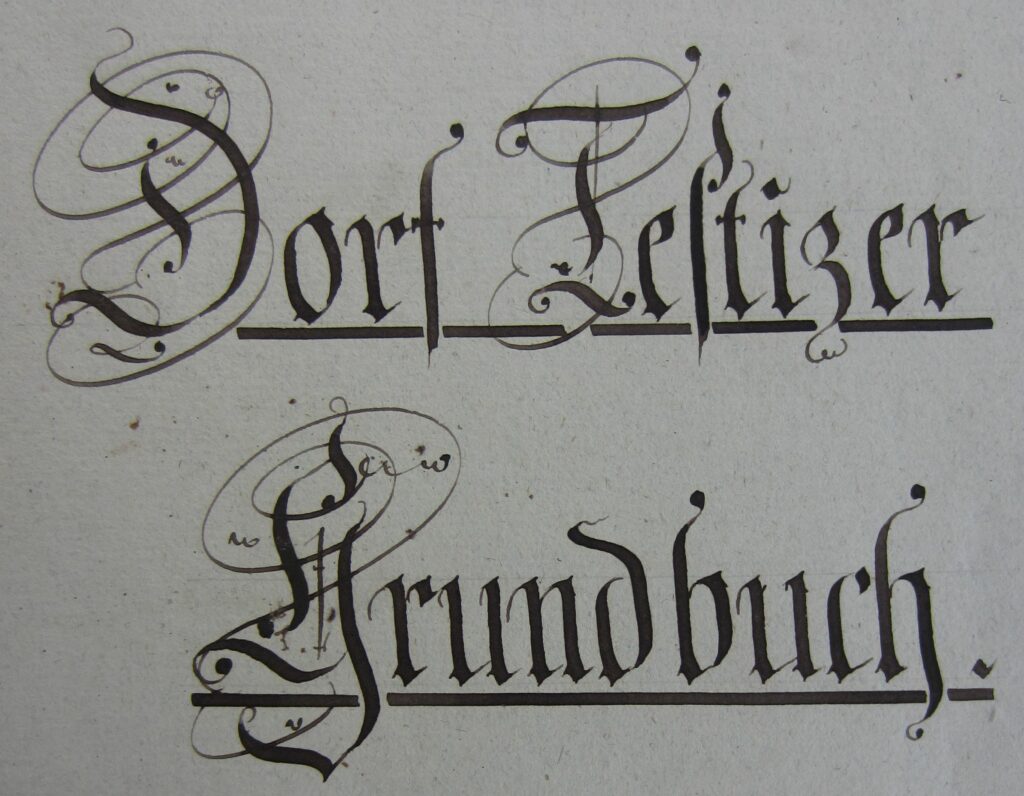 Dorf Teſtizer
Grundbuch.